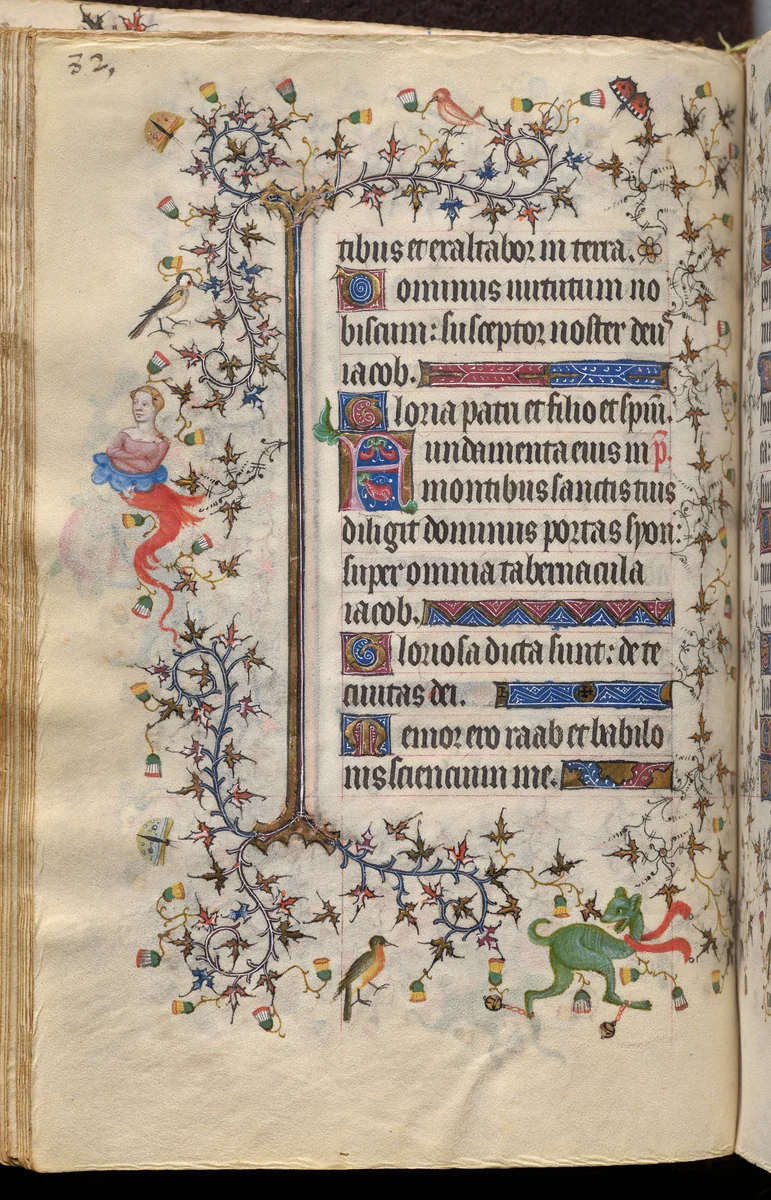 32,
tibus et exaltabor in terra.
Dominus uirtutum no
biscum: susceptor noster deus
iacob.
Gloria patri et filio et spiri.
Fundamenta eius in p̄.
montibus sanctis tuis
diligit dominus portas syon:
super omnia tabernacula
iacob.
Gloriosa dicta sunt: de te
ciuitas dei.
Memor ero raab et babilo
nis sciencium me.